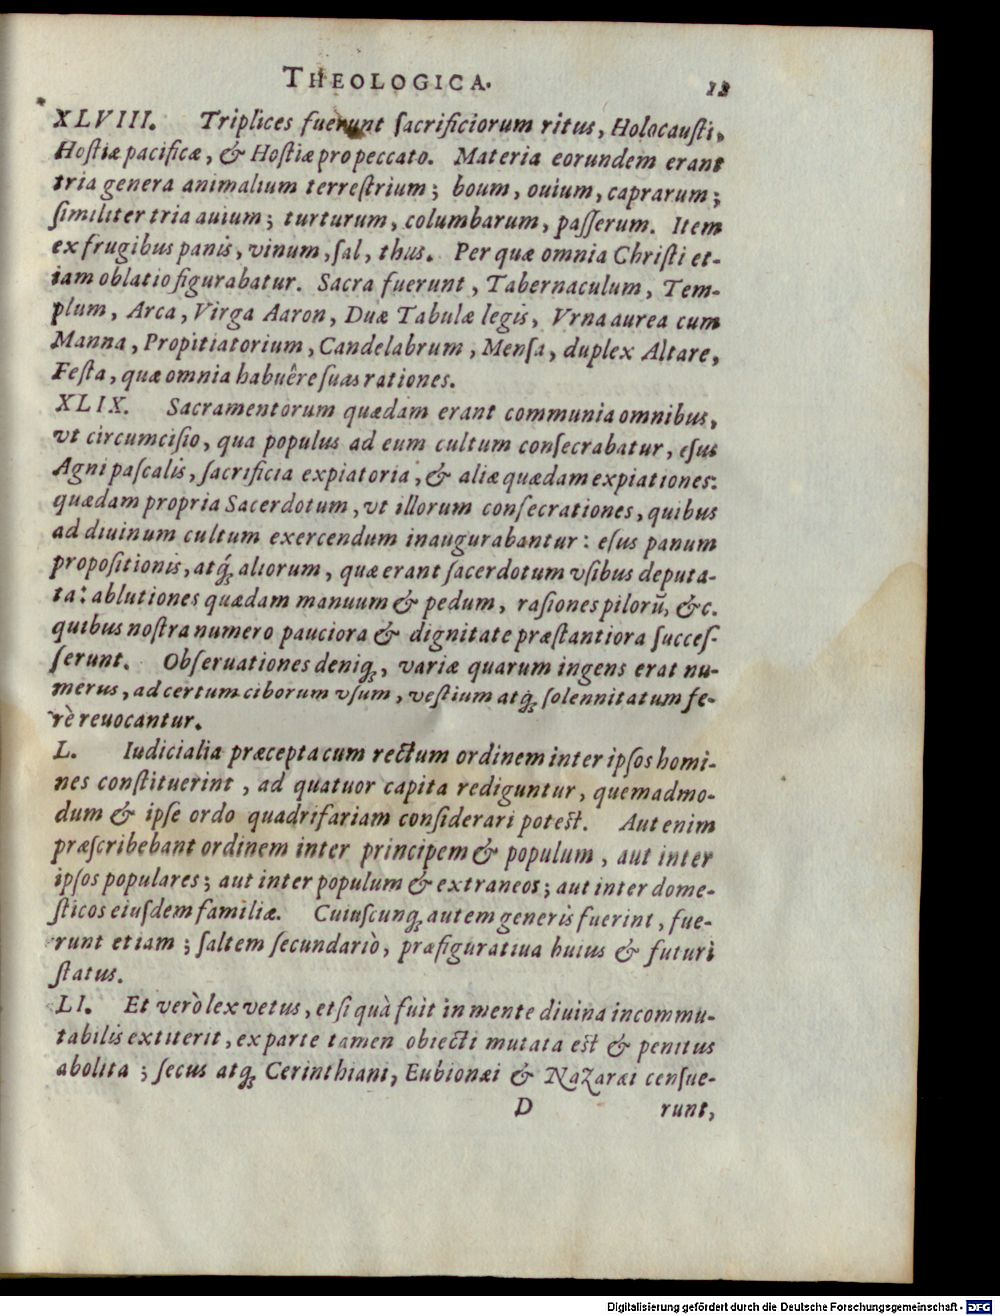 THEOLOGICA.
XLVIII. Triplices fuerunt ſacrificiorum ritus, Holocauſti,
Hoſtiæ pacificæ, & Hoſtiæ pro peccato. Materia eorundem erant
tria genera animalium terreſtrium; boum, ouium, caprarum;
ſimiliter tria auium; turturum, columbarum, paſſerum. Item
ex frugibus panis, vinum, ſal, thus. Per quæ omnia Chriſti et-
iam oblatio figurabatur. Sacra fuerunt, Tabernaculum, Tem-
plum, Arca, Virga Aaron, Duæ Tabulæ legis, Vrna aurea cum
Manna, Propitiatorium, Candelabrum, Menſa, duplex Altare,
Feſta, quæ omnia habuêre ſuas rationes.
XLIX. Sacramentorum quædam erant communia omnibus,
vt circumciſio, qua populus ad eum cultum conſecrabatur, eſus
Agni paſcalis, ſacrificia expiatoria, & aliæ quædam expiationes:
quædam propria Sacerdotum, vt illorum conſecrationes, quibus
ad diuinum cultum exercendum inaugurabantur: eſus panum
propoſitionis, atq́ꝫ aliorum, quæ erant ſacerdotum vſibus deputa-
ta: ablutiones quædam manuum & pedum, raſiones pilorũ, &c.
quibus noſtra numero pauciora & dignitate præſtantiora ſucceſ-
ſerunt. Obſeruationes deniqꝫ, variæ quarum ingens erat nu-
merus, ad certum ciborum vſum, veſtium atqꝫ ſolennitatum fe-
rè reuocantur.
L. Iudicialia præcepta cum rectum ordinem inter ipſos homi-
nes conſtituerint, ad quatuor capita rediguntur, quemadmo-
dum & ipſe ordo quadrifariam conſiderari poteſt. Aut enim
præſcribebant ordinem inter principem & populum, aut inter
ipſos populares; aut inter populum & extraneos; aut inter dome-
ſticos eiuſdem familiæ. Cuiuſcunqꝫ autem generis fuerint, fue-
runt etiam; ſaltem ſecundariò, præfiguratiua huius & futuri
ſtatus.
LI. Et verò lex vetus, etſi quà fuit in mente diuina incommu-
tabilis extiterit, ex parte tamen obiecti mutata eſt & penitus
abolita; ſecus atqꝫ Cerinthiani, Eubionæi & Nazaræi cenſue-
D runt,
Digitalisierung gefördert durch die Deutsche Forschungsgemeinschaft - DFG